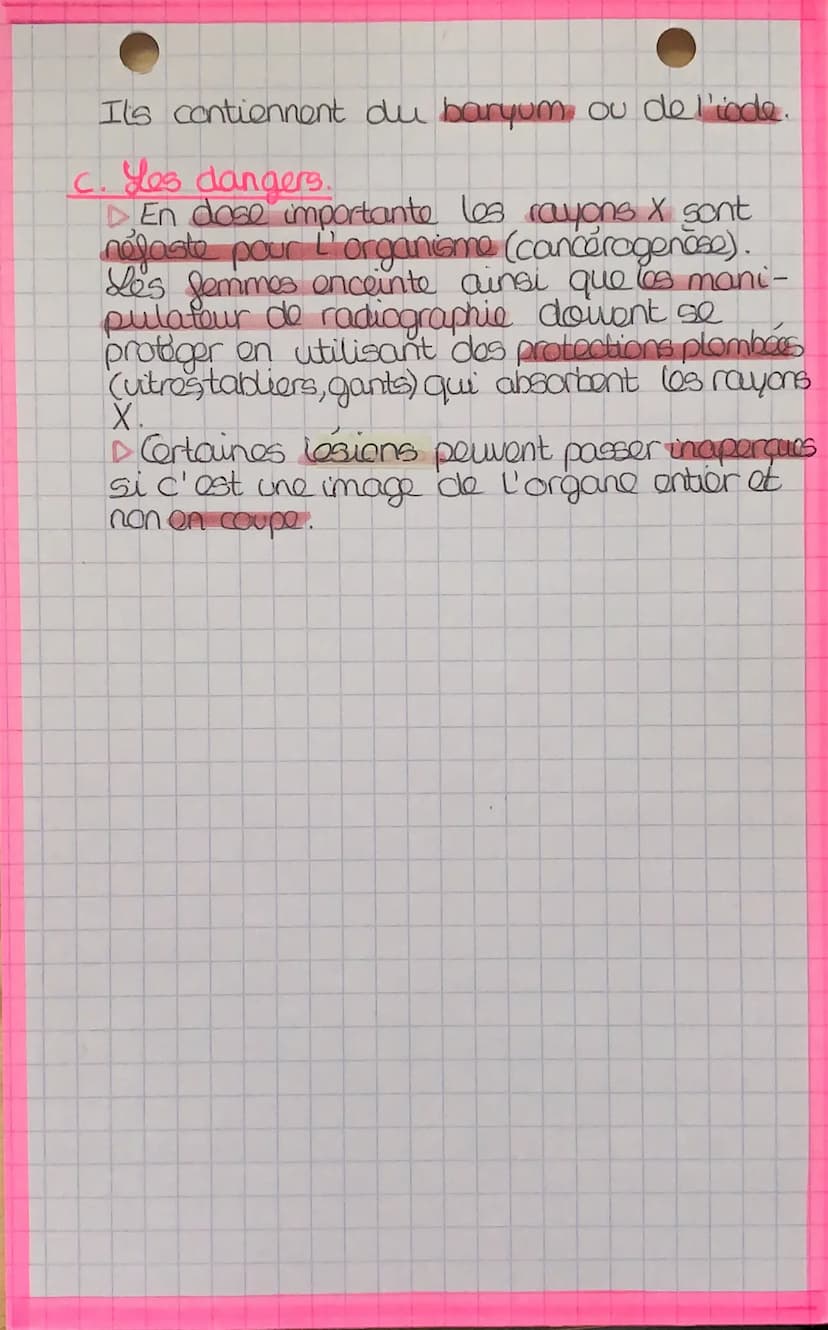 Ils contiennent du baryum ou de l'iode.
c. Les dangers.
▷ En dose importante les rayons X sont
néfaste pour l'organisme (cancérogenèse).
Les femmes enceinte ainsi que les mani-
pulateur de radiographie doivent se
protéger en utilisant des protections plombées
(vitres, tabliers, gants) qui absorbent les rayons
X.
▷ Certaines lésions peuvent passer inaperçues
si c'est une image de l'organe entier et
non en coupe.